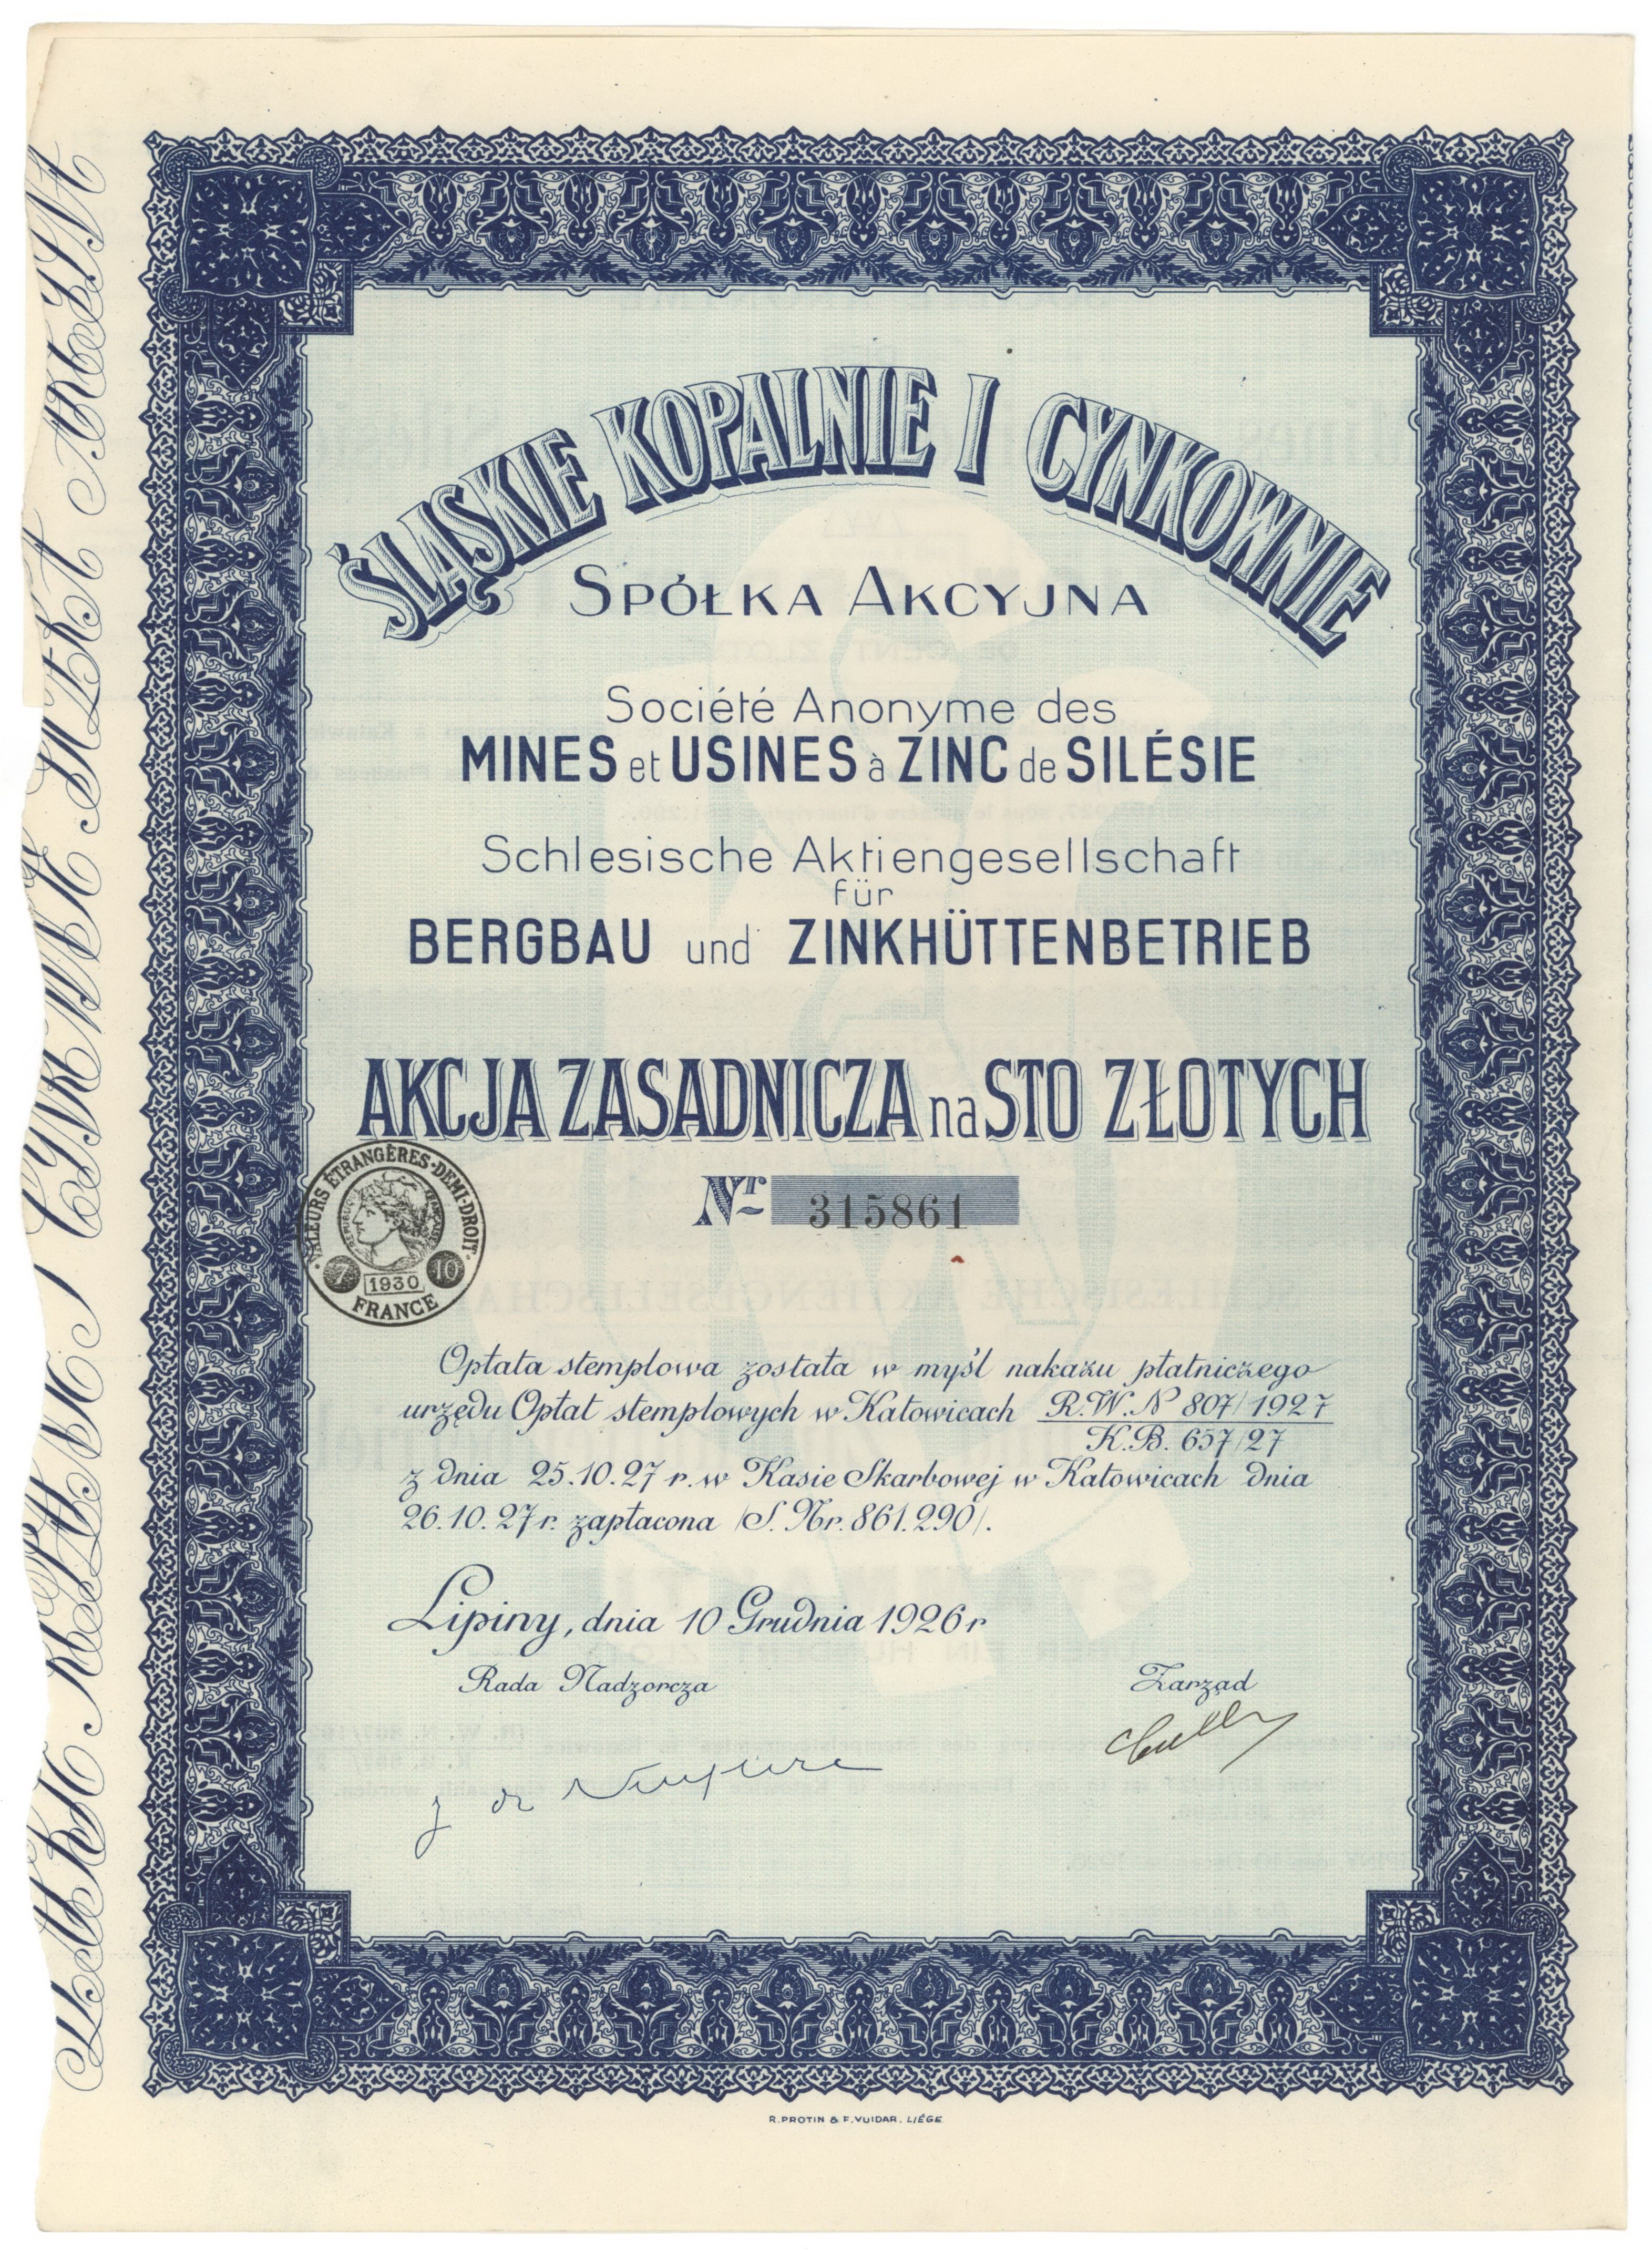 ŚLĄSKIE KOPALNIE I CYNKOWNIE
SPÓŁKA AKCYJNA
Société Anonyme des
MINES et USINES à ZINC de SILÉSIE
Schlesische Aktiengesellschaft
für
BERGBAU und ZINKHÜTTENBETRIEB
AKCJA ZASADNICZA na STO ZŁOTYCH
Nr 315861
VALEURS ÉTRANGÈRES-DEMI-DROIT
7 1930 10
FRANCE
Opłata stemplowa została w myśl nakazu płatniczego
urzędu Opłat stemplowych w Katowicach R.W.N 807/1927
K.B. 657/27
z dnia 25.10.27 r. w Kasie Skarbowej w Katowicach dnia
26.10.27 r. zapłacona /S. Nr. 861.290/.
Lipiny, dnia 10 Grudnia 1926 r
Rada Nadzorcza
Zarząd
R. PROTIN & F. VUIDAR. LIÉGE